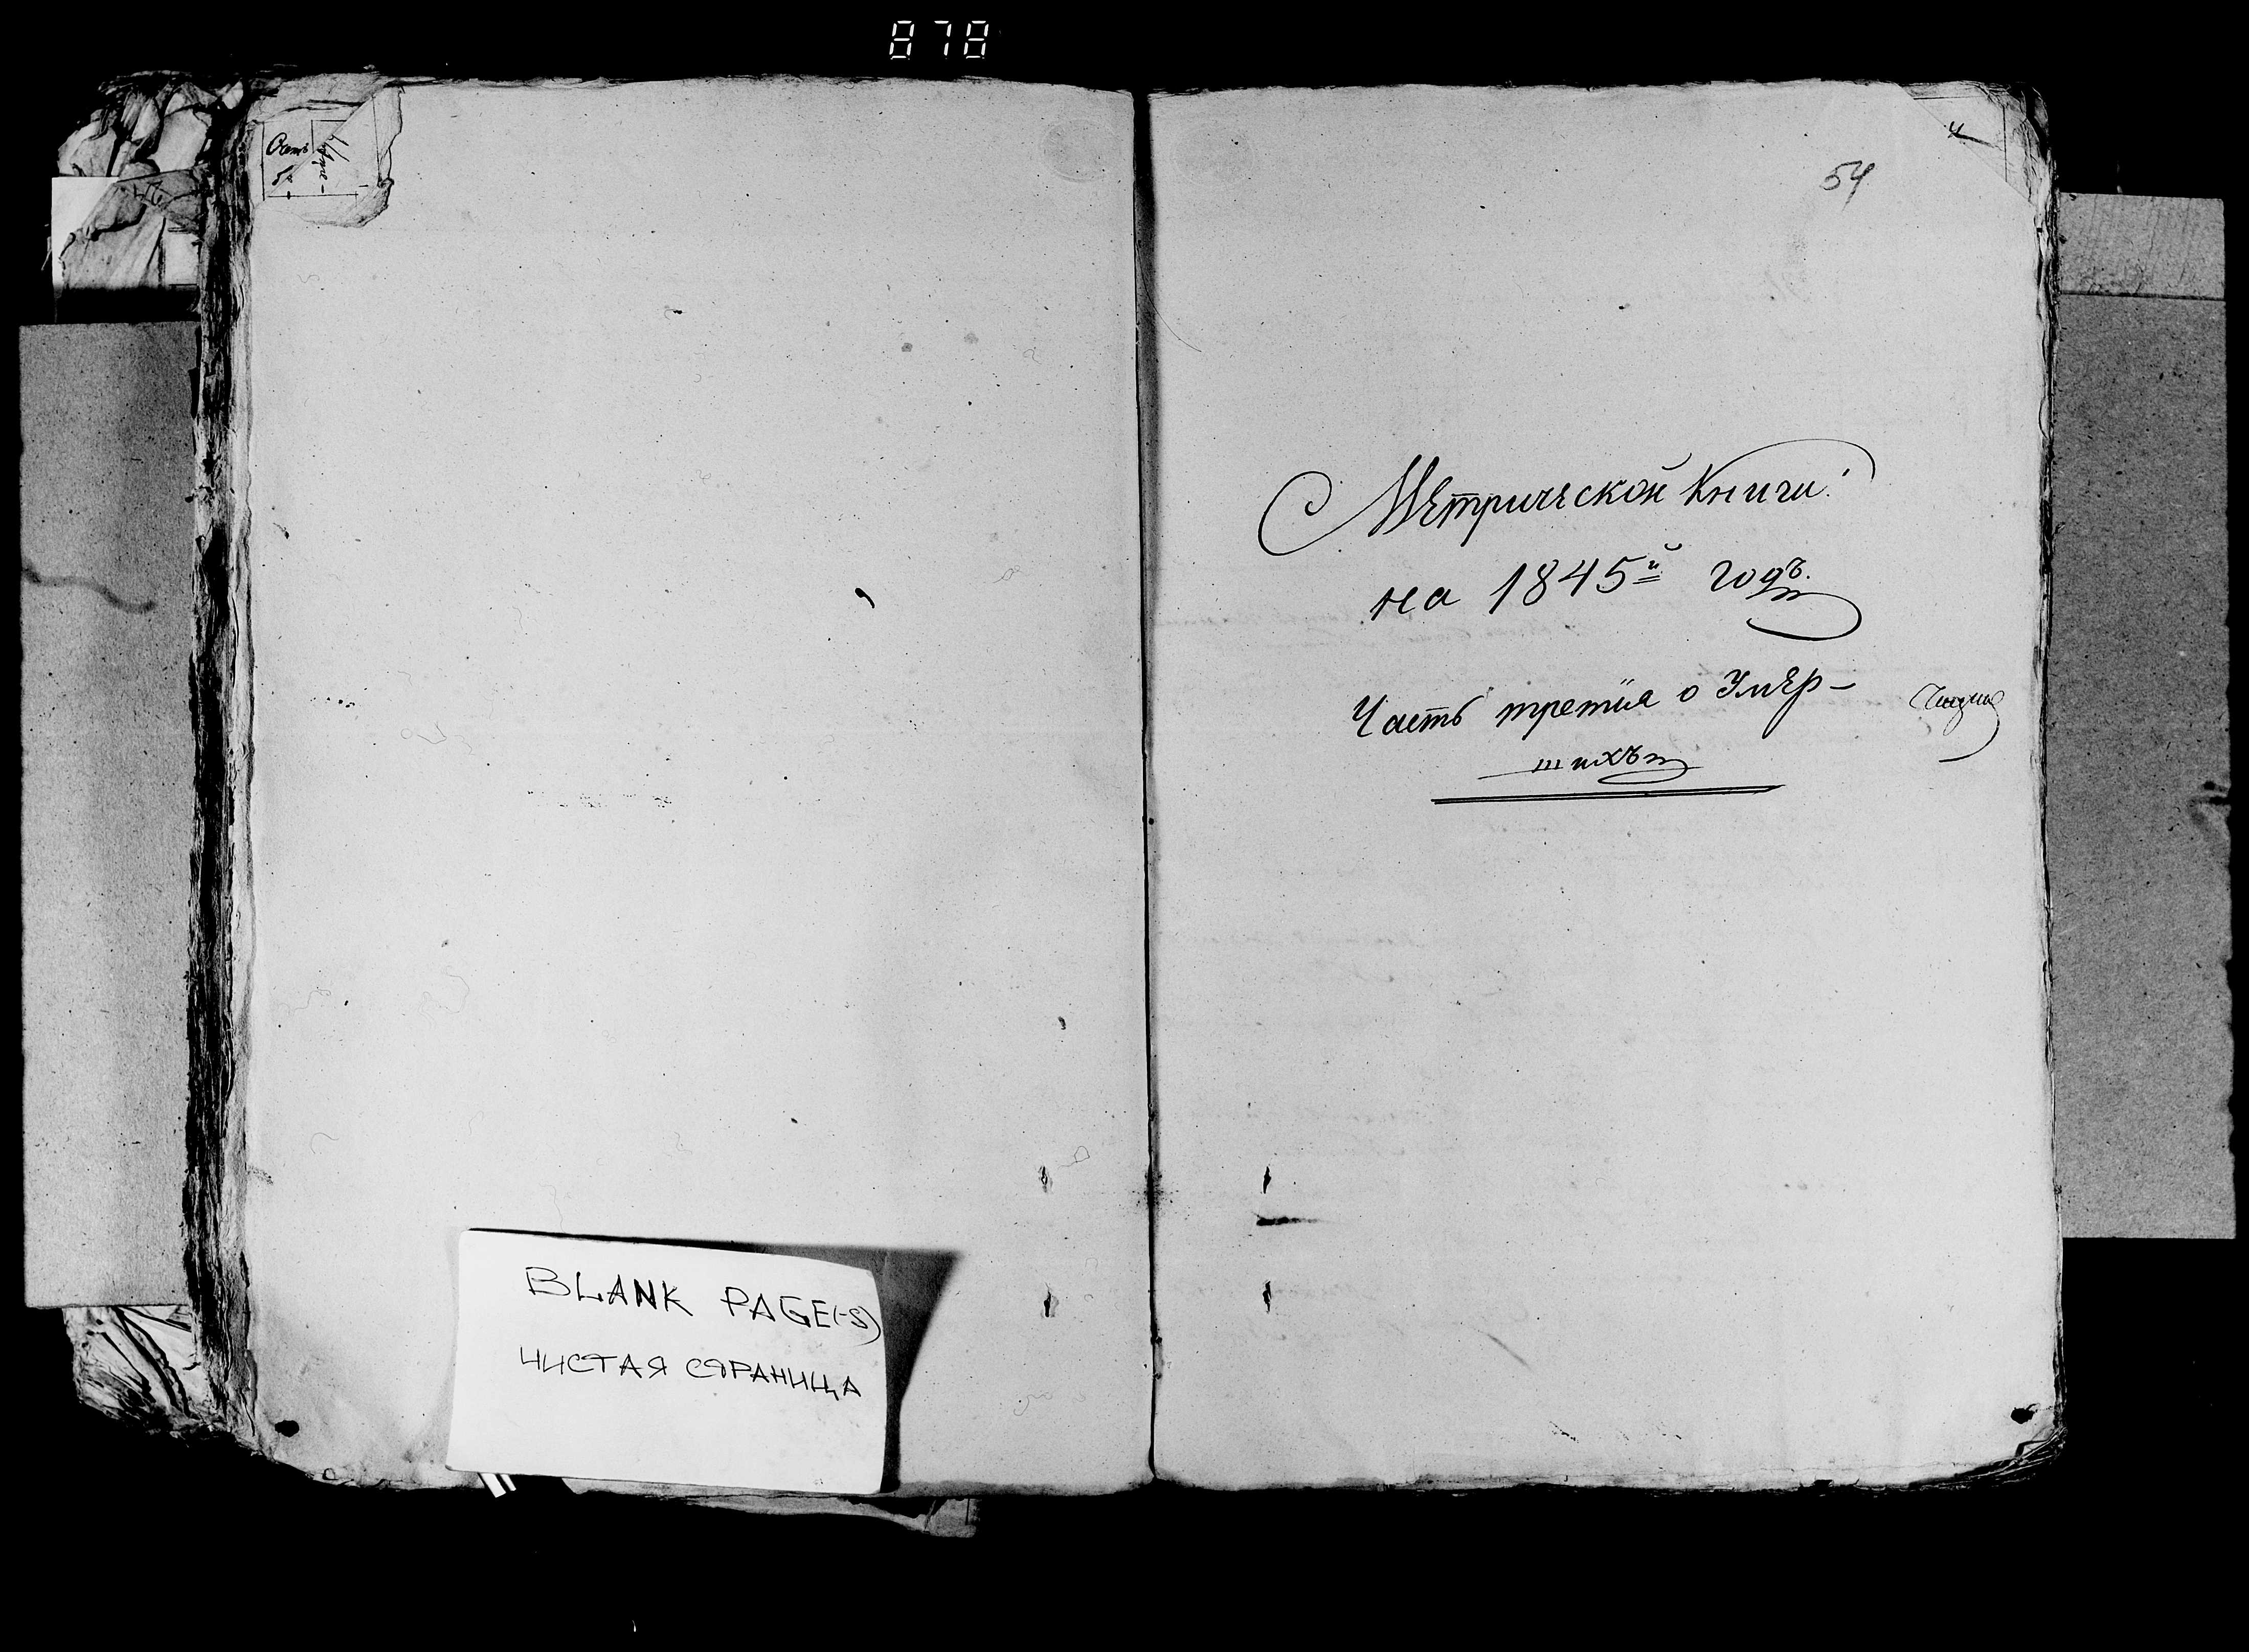 878
54
Метрической Книги:
на 1845й годъ.
Часть третія о Умер-
шихъ
BLANK PAGE(-S)
ЧИСТАЯ СТРАНИЦА